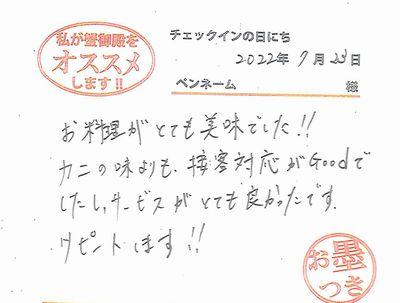 私が蟹御殿を
オススメ
します!!
チェックインの日にち
2022年 7月 23日
ペンネーム 様
お料理がとても美味でした!!
カニの味よりも、接客対応がGoodで
したし、サービスがとても良かったです。
リピートします!!
お墨
つき